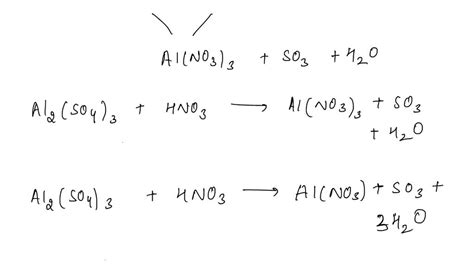 Al(NO₃)₃ + SO₃ + H₂O
Al₂(SO₄)₃ + HNO₃ → Al(NO₃)₃ + SO₃
+ H₂O
Al₂(SO₄)₃ + HNO₃ → Al(NO₃) + SO₃ +
3H₂O